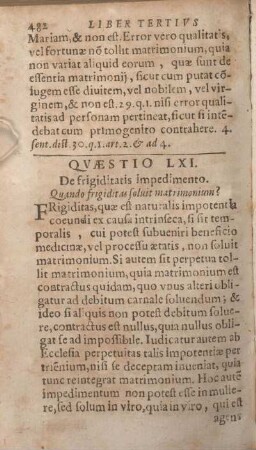 482 LIBER TERTIVS
Mariam, & non est. Error vero qualitatis,
vel fortunæ nō tollit matrimonium, quia
non variat aliquid eorum, quæ sunt de
essentia matrimonij, sicut cum putat cō-
iugem esse diuitem, vel nobilem, vel vir-
ginem, & non est. 29. q. 1. nisi error quali-
tatis ad personam pertineat, sicut si inte-
debat cum primogenito contrahere. 4.
sent. dist. 30. q. 1. art. 2. & ad 4.
QVÆSTIO LXI.
De frigiditatis impedimento.
Quando frigiditas soluit matrimonium?
FRigiditas, quæ est naturalis impotentia
coeundi ex causa intrinseca, si sit tem-
poralis, cui potest subueniri beneficio
medicinæ, vel processu ætatis, non soluit
matrimonium. Si autem sit perpetua tol-
lit matrimonium, quia matrimonium est
contractus quidam, quo vnus alteri obli-
gatur ad debitum carnale soluendum; &
ideo si alquis non potest debitum solue-
re, contractus est nullus, quia nullus obli-
gat se ad impossibile. Iudicatur autem ab
Ecclesia perpetuitas talis impotentiæ per
triēnium, nisi se decepram inueniat, quia
tunc reintegrat matrimonium. Hoc autē
impedimentum non potest esse in mulie-
re, sed solum in viro, quia in viro, qui est
agens